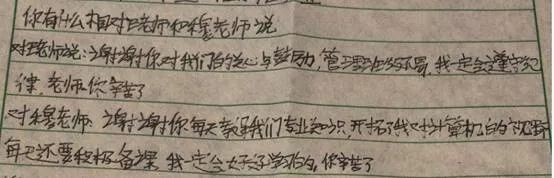 你有什么想对王老师和穆老师说
对王老师说:谢谢你对我们的关心与鼓励,管理班级不累,我一定会遵守纪
律,老师你辛苦了
对穆老师:谢谢你每天教我们专业知识,开拓了我对计算机的视野
每日还要积极备课,我一定会好好学习的,你辛苦了